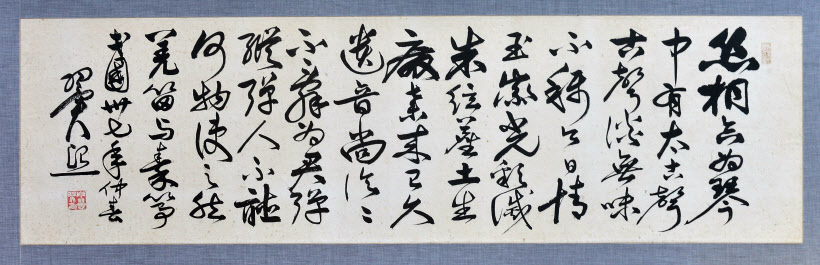 絲桐合為琴
中有太古聲
古聲淡無味
不稱今日情
玉徽光彩滅
朱絃塵土生
廢棄來已久
遺音尚泠〻
不辭為君彈
縱彈人不聽
何物使之然
羌笛与秦箏
民國卅七年仲春